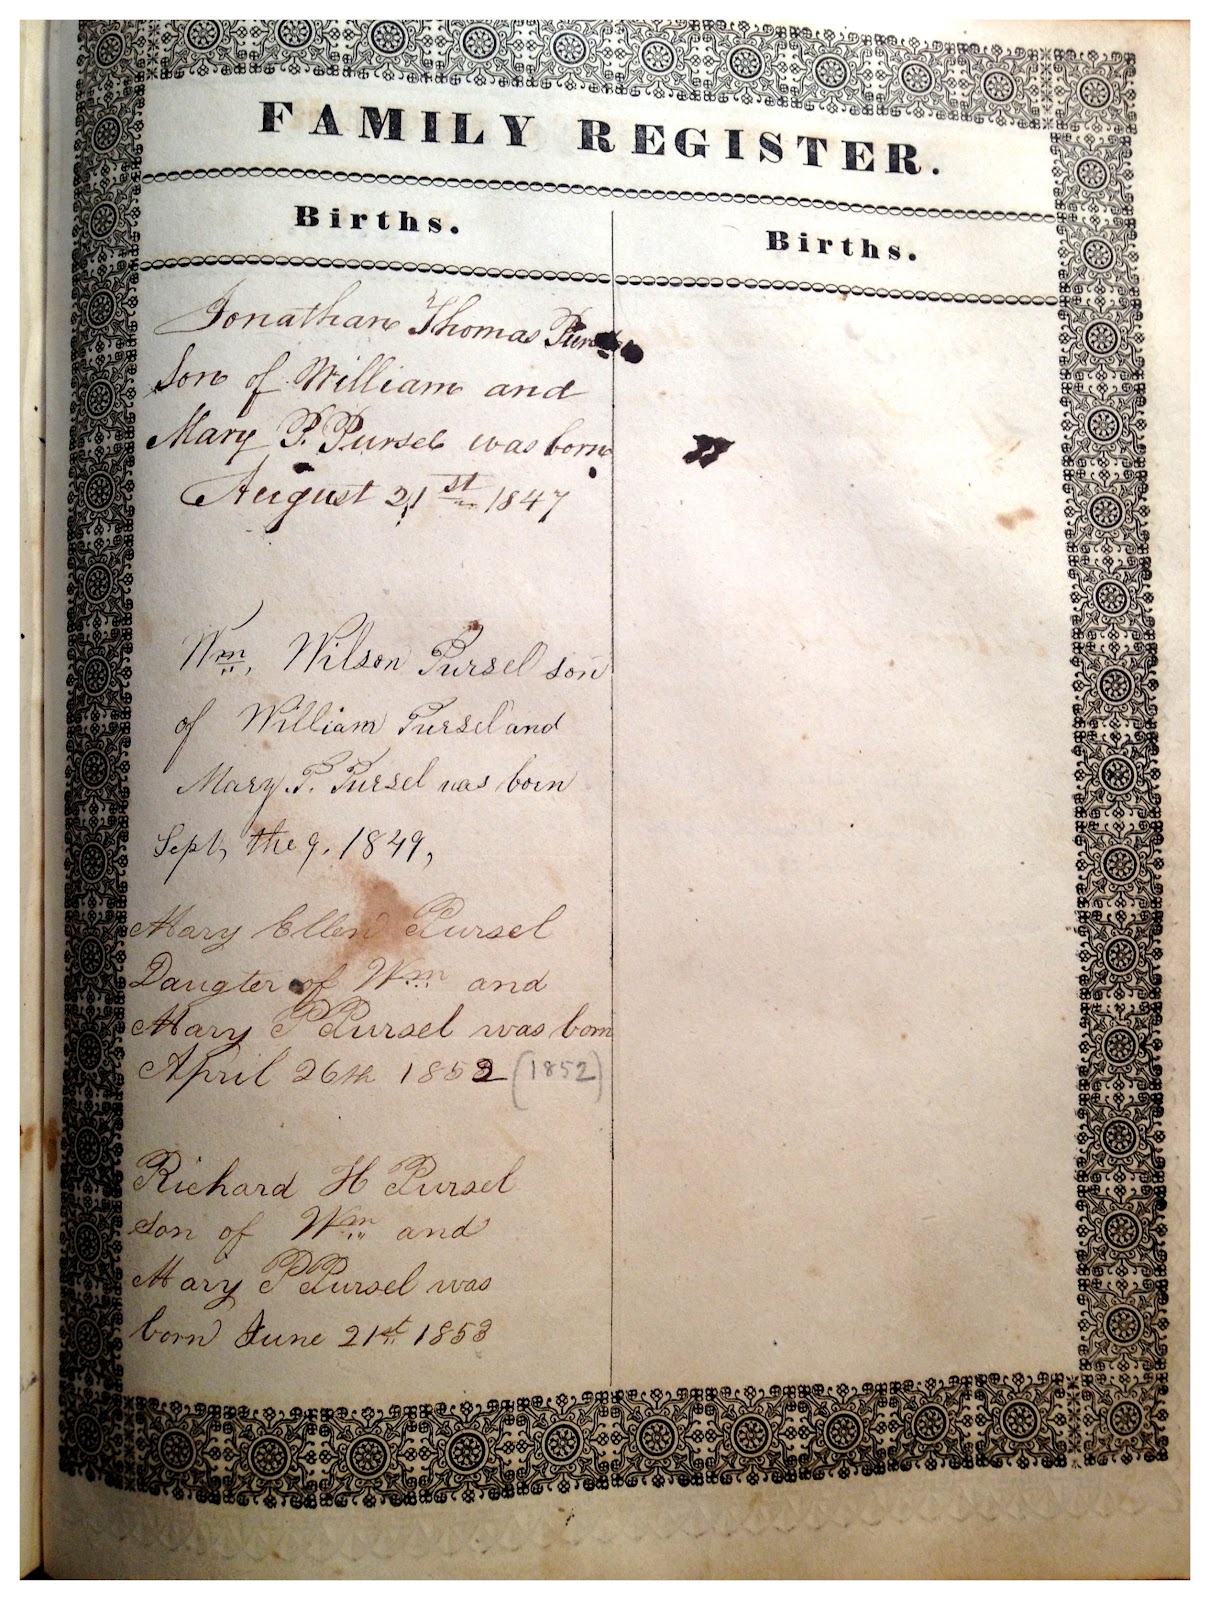 FAMILY REGISTER.
Births.
Births.
Jonathan Thomas
Son of William and
Mary P. Pursel was born
August 21st 1847
Wm, Wilson Pursel son
of William Pursel and
Mary. P. Pursel was born
Sept, the 9, 1849,
Mary Ellen Pursel
Daugter of Wm and
Mary P Pursel was born
April 26th 1852 (1852)
Richard H Pursel
son of Wm and
Mary P Pursel was
born June 21st 1853